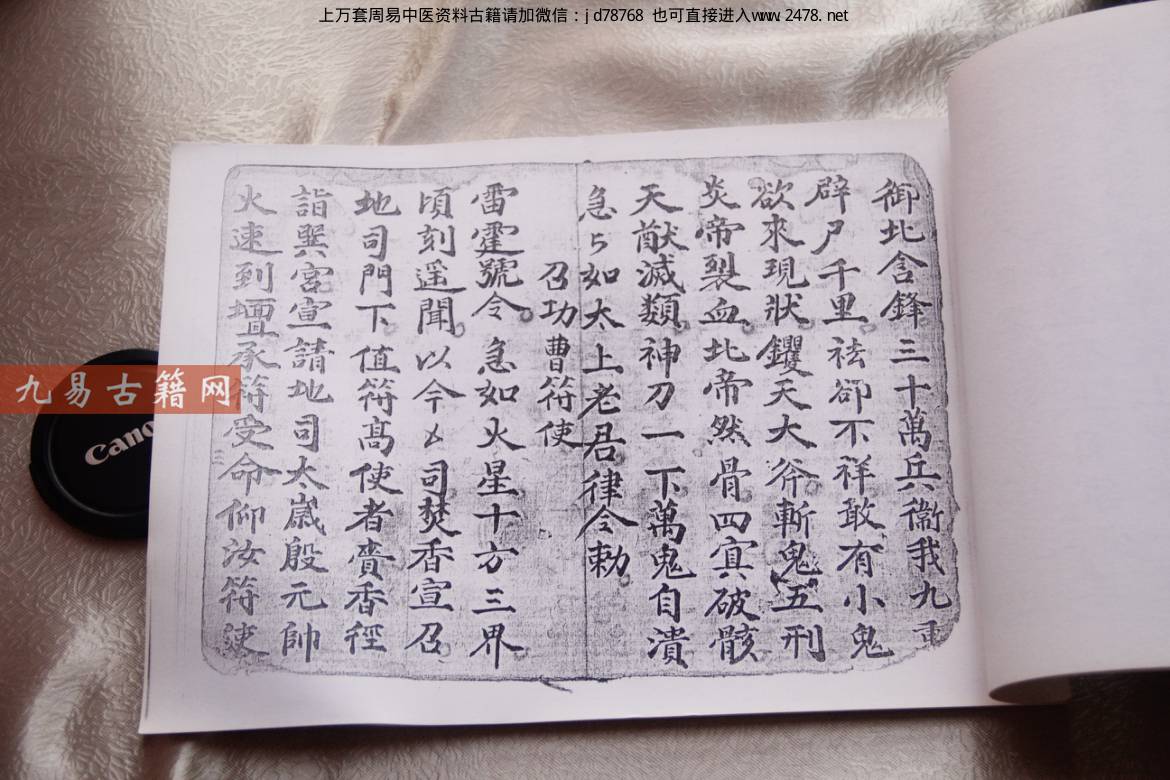 上万套周易中医资料古籍请加微信：jd78768 也可直接进入www.2478.net
御北含鋒三十萬兵衞我九重
辟尸千里祛卻不祥敢有小鬼
欲來現狀钁天大斧斬鬼五刑
炎帝裂血北帝然骨四寘破骸
天猷滅類神刀一下萬鬼自潰
急ㄣ如太上老君律令勅
召功曹符使
雷霆號令急如火星十方三界
頃刻遥聞以今乄司焚香宣召
地司門下值符髙使者賫香徑
詣巽宮宣請地司太嵗殷元帥
火速到壇承符受命仰汝符使
九易古籍网
Cano